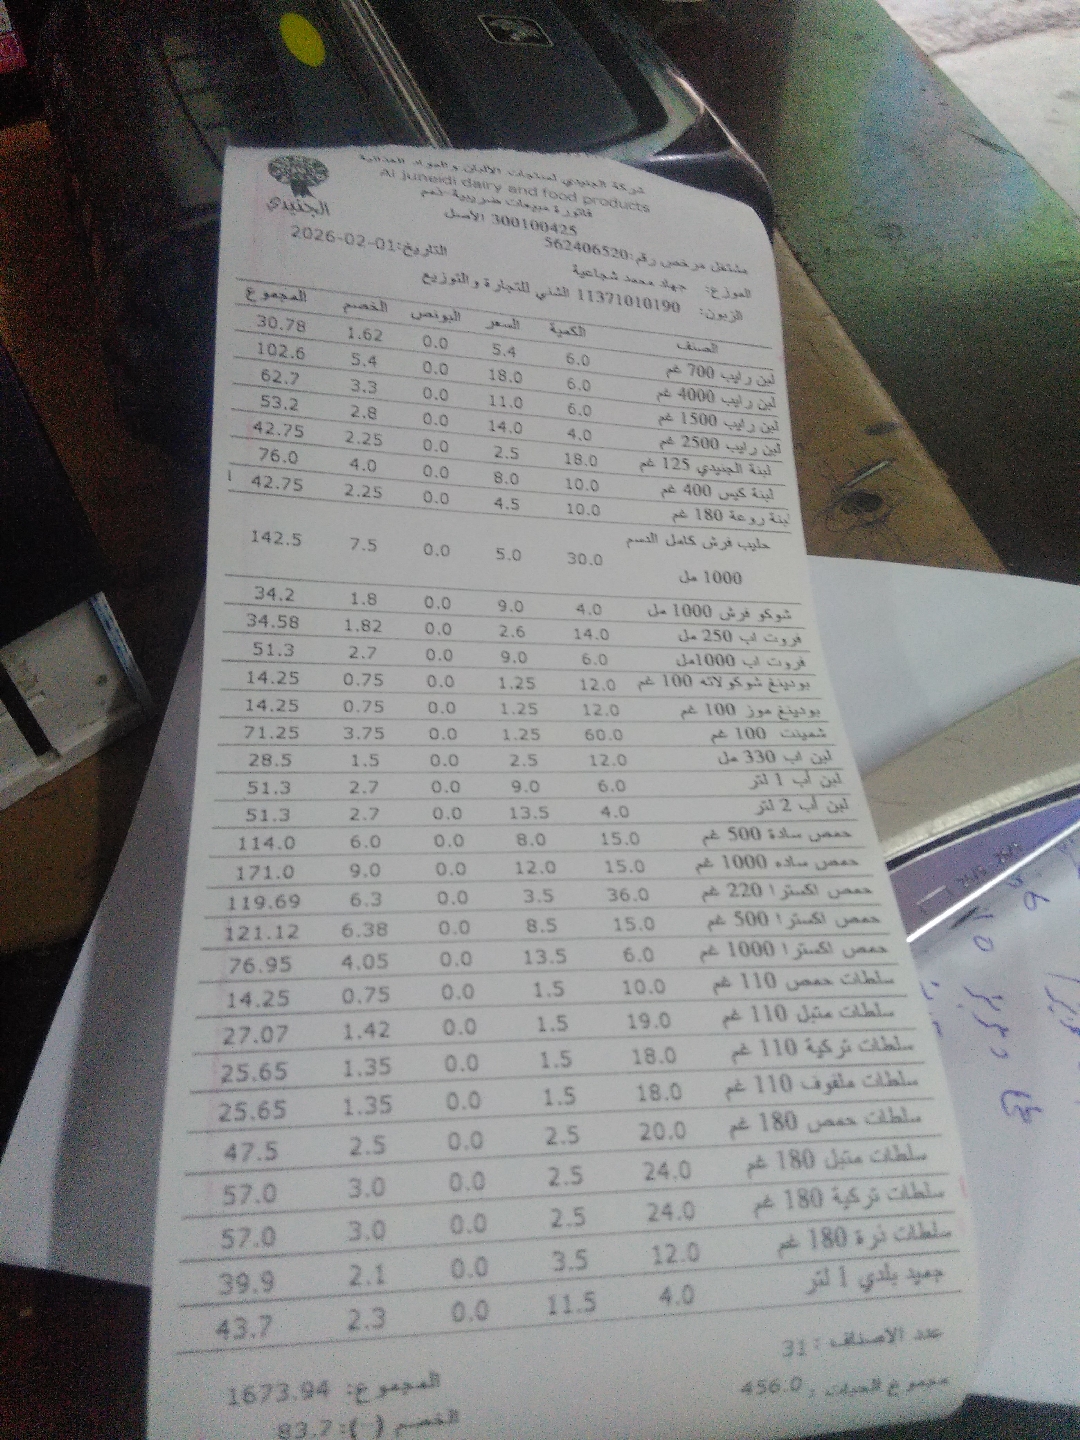 شركة الجنيدي لمنتجات الألبان والمواد الغذائية
Al juneidi dairy and food products
الجنيدي
فاتورة مبيعات ضريبية-نعم
300100425 الأصل
مشتغل مرخص رقم:562406520
التاريخ:2026-02-01
الموزع: جهاد محمد شجاعية
الزبون: 11371010190 الشني للتجارة والتوزيع
الصنف الكمية السعر البونص الخصم المجموع
لبن رايب 700 غم 6.0 5.4 0.0 1.62 30.78
لبن رايب 4000 غم 6.0 18.0 0.0 5.4 102.6
لبن رايب 1500 غم 6.0 11.0 0.0 3.3 62.7
لبن رايب 2500 غم 4.0 14.0 0.0 2.8 53.2
لبنة الجنيدي 125 غم 18.0 2.5 0.0 2.25 42.75
لبنة كيس 400 غم 10.0 8.0 0.0 4.0 76.0
لبنة روعة 180 غم 10.0 4.5 0.0 2.25 42.75
حليب فرش كامل الدسم
1000 مل 30.0 5.0 0.0 7.5 142.5
شوكو فرش 1000 مل 4.0 9.0 0.0 1.8 34.2
فروت اب 250 مل 14.0 2.6 0.0 1.82 34.58
فروت اب 1000مل 6.0 9.0 0.0 2.7 51.3
بودينغ شوكولاته 100 غم 12.0 1.25 0.0 0.75 14.25
بودينغ موز 100 غم 12.0 1.25 0.0 0.75 14.25
شمينت 100 غم 60.0 1.25 0.0 3.75 71.25
لبن اب 330 مل 12.0 2.5 0.0 1.5 28.5
لبن أب 1 لتر 6.0 9.0 0.0 2.7 51.3
لبن أب 2 لتر 4.0 13.5 0.0 2.7 51.3
حمص سادة 500 غم 15.0 8.0 0.0 6.0 114.0
حمص ساده 1000 غم 15.0 12.0 0.0 9.0 171.0
حمص اكسترا 220 غم 36.0 3.5 0.0 6.3 119.69
حمص اكسترا 500 غم 15.0 8.5 0.0 6.38 121.12
حمص اكسترا 1000 غم 6.0 13.5 0.0 4.05 76.95
سلطات حمص 110 غم 10.0 1.5 0.0 0.75 14.25
سلطات متبل 110 غم 19.0 1.5 0.0 1.42 27.07
سلطات تركية 110 غم 18.0 1.5 0.0 1.35 25.65
سلطات ملفوف 110 غم 18.0 1.5 0.0 1.35 25.65
سلطات حمص 180 غم 20.0 2.5 0.0 2.5 47.5
سلطات متبل 180 غم 24.0 2.5 0.0 3.0 57.0
سلطات تركية 180 غم 24.0 2.5 0.0 3.0 57.0
سلطات ذرة 180 غم 12.0 3.5 0.0 2.1 39.9
جميد بلدي 1 لتر 4.0 11.5 0.0 2.3 43.7
عدد الاصناف : 31
المجموع: 1673.94
مجموع الحبات : 456.0
الخصم ( ): 83.7